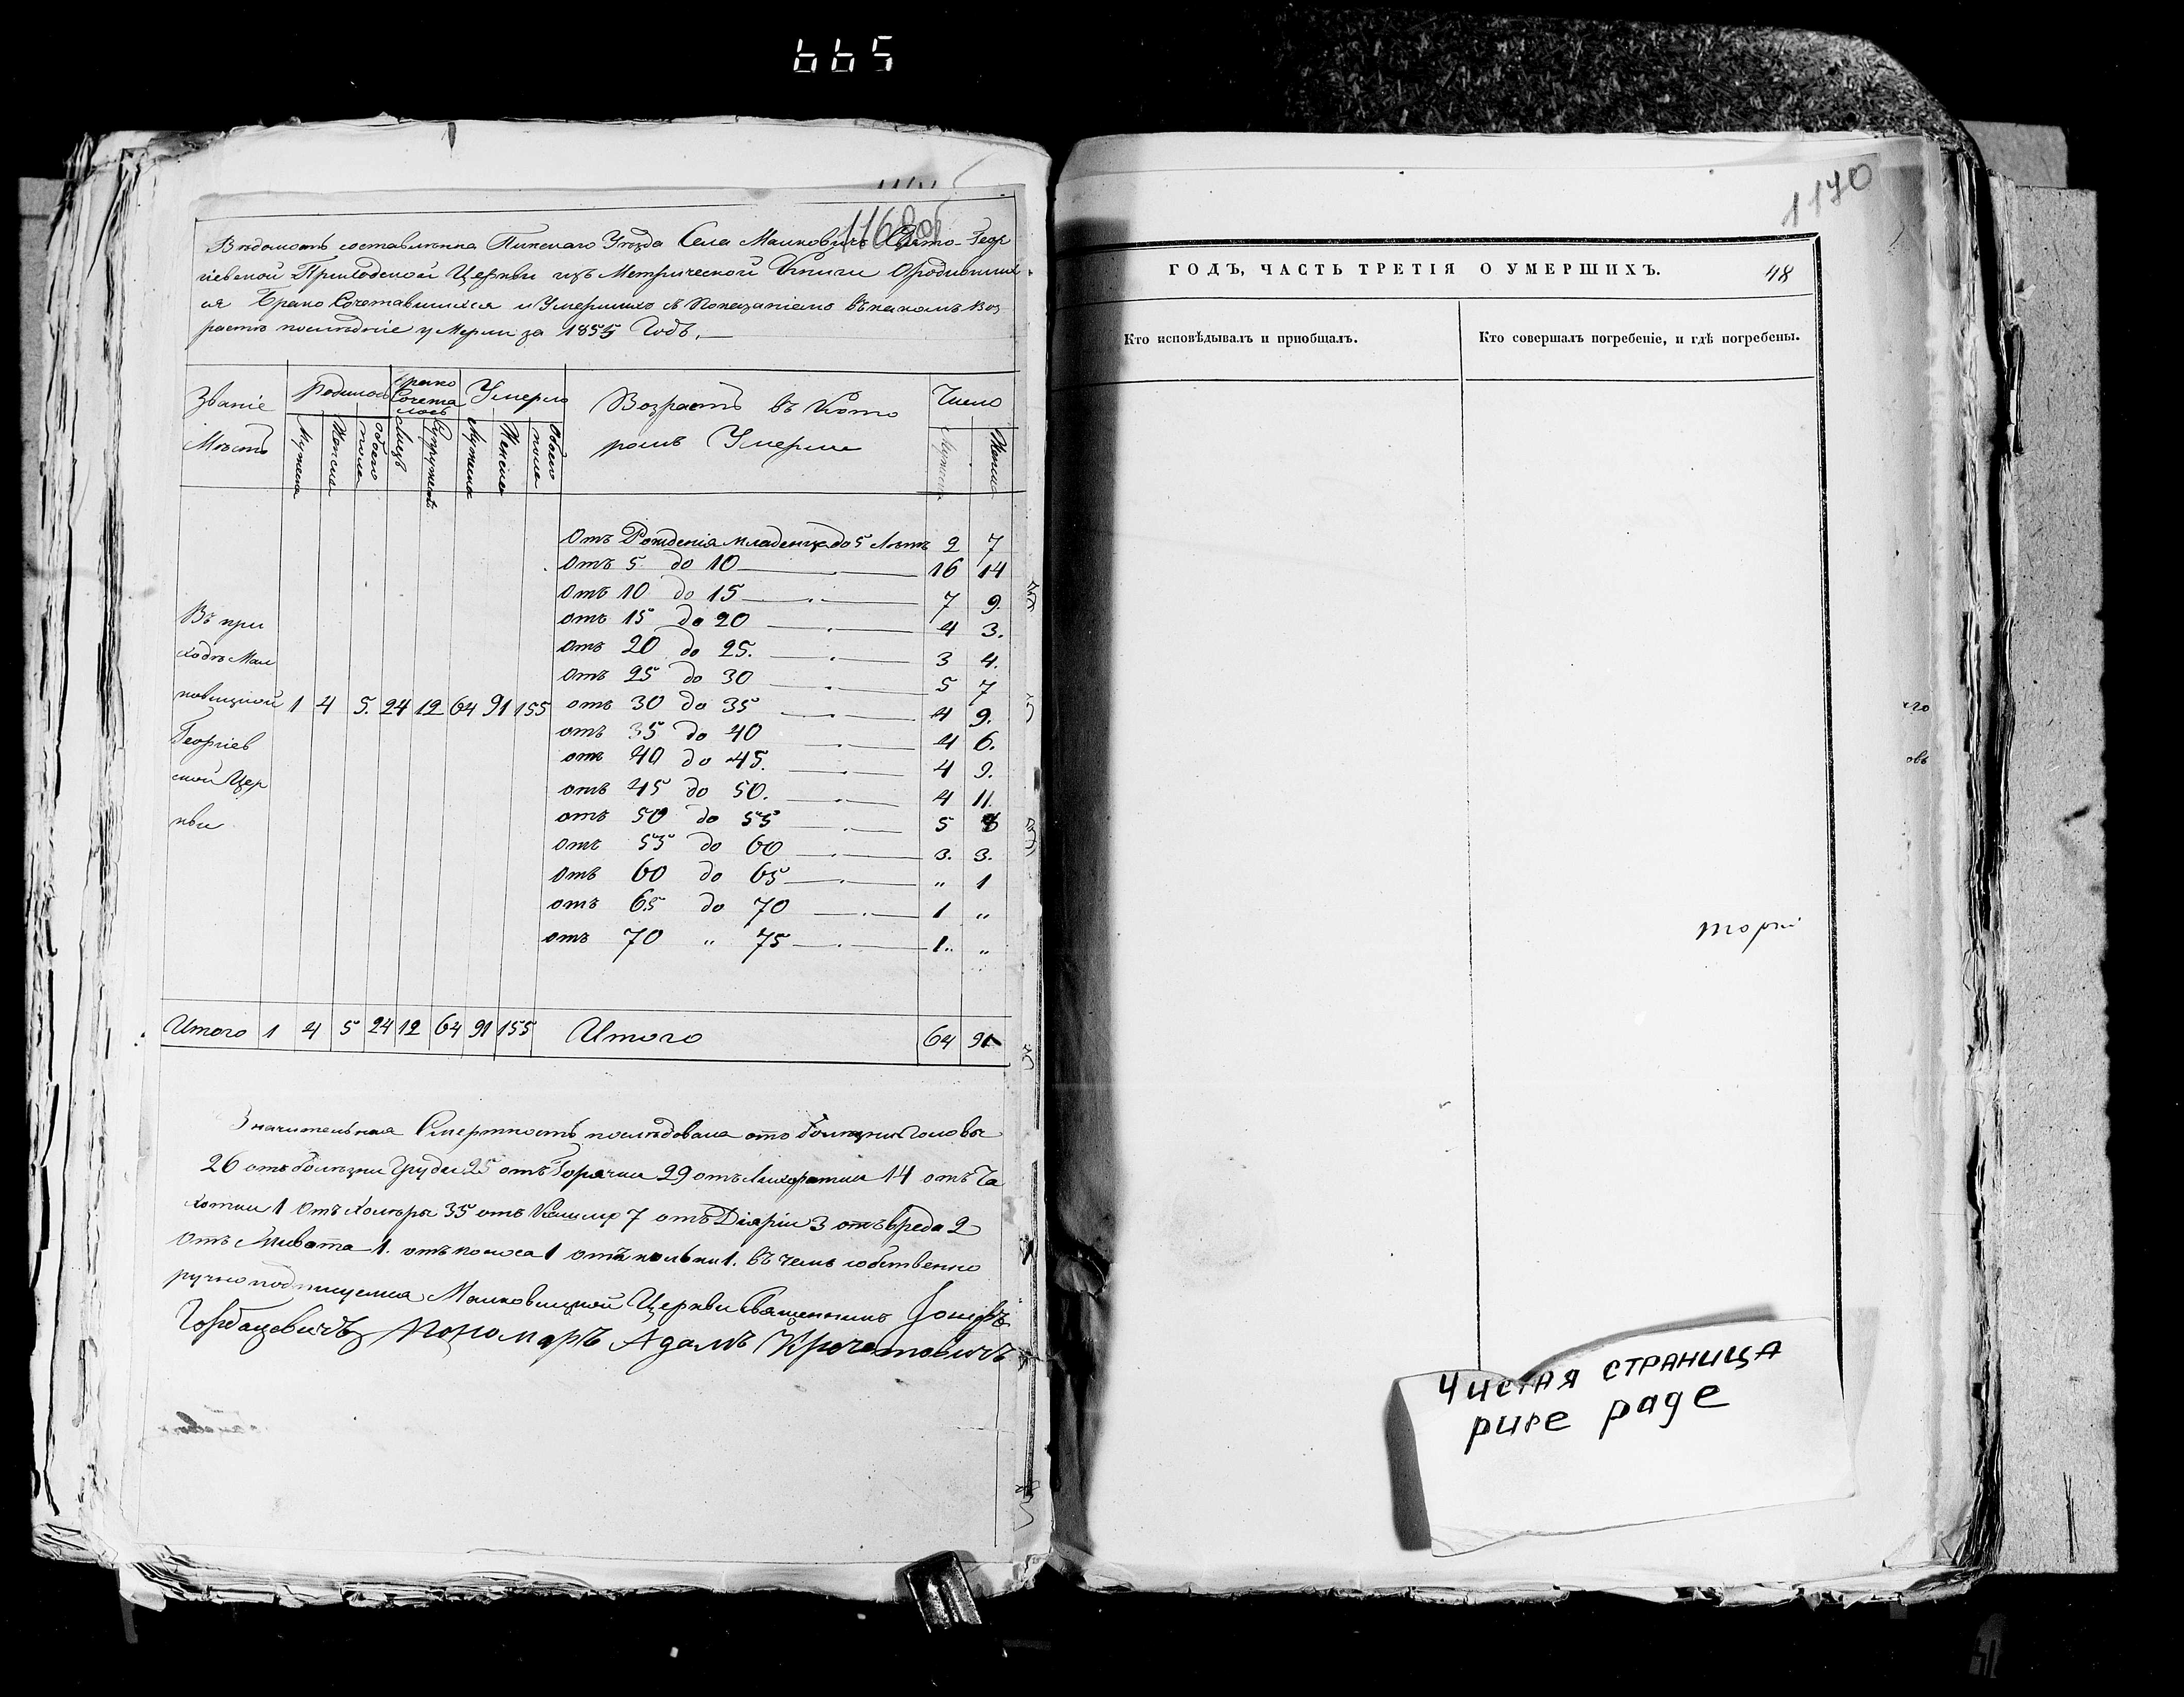 665
1168об
Вѣдомость составлѣнна Пинскаго Уѣзда Села Малковичъ Свято-Геор
гіевской Приходской Церкви изъ Метрической Книги О родивших
ся Брако Сочетавшихся и Умершихъ съ Показаніемъ въ какомъ Воз
растѣ послѣдніе умерли за 1855 Годъ.
Званіе Мѣстъ
Родилось
Брако Сочета лось
Умерло
Возрастъ въ Кото ромъ Умерли
Число
Мужска Женска обоего пола Лицъ Супружествъ Мужска Женска Обоего пола Мужска Женска
Отъ Рожденія младенца до 5 Лѣтъ 9 7
Отъ 5 до 10 16 14
Отъ 10 до 15 7 9.
отъ 15 до 20 4 3.
отъ 20 до 25. 3 4.
отъ 25 до 30 5 7
отъ 30 до 35 4 9.
отъ 35 до 40 4 6.
отъ 40 до 45. 4 9.
отъ 45 до 50. 4 11.
отъ 50 до 55 5
отъ 55 до 60 3. 3.
отъ 60 до 65 " 1
отъ 65 до 70 1 "
отъ 70 " 75 1. "
Въ при
ходѣ Мал
ковицкой 1 4 5. 24 12 64 91 155
Георгіев
ской Цер
кви
Итого 1 4 5 24 12 64 91 155 Итого 64 91
Значительная Смертность послѣдовала отъ болѣзни Головы
26 отъ болѣзни Груди 25 отъ Горячки 29 отъ Лихоратки 14 отъ Ча
хотки 1 Отъ Холѣры 35 отъ Кашлю 7 отъ Діаріи 3 отъ вреда 2
Отъ Живота 1. отъ поноса 1 отъ кольки 1. въ чемъ собственно
ручно подписуемся Малковицкой Церкви Священникъ Іосифъ
Горбацевичъ Пономаръ Адамъ Кречетовичъ
1170
ГОДЪ, ЧАСТЬ ТРЕТІЯ О УМЕРШИХЪ. 48
Кто исповѣдывалъ и пріобщалъ.
Кто совершалъ погребеніе, и гдѣ погребены.
овъ
Чистая страница
pure page